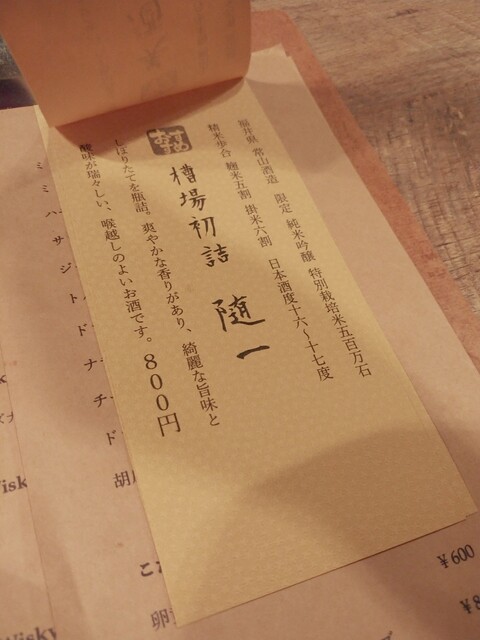 福井県 常山酒造 限定 純米吟醸 特別栽培米五百万石
精米歩合 麹米五割 掛米六割 日本酒度十六〜十七度
すすめ
槽場初詰 随一
しぼりたてを瓶詰。爽やかな香りがあり、綺麗な旨味と
酸味が瑞々しい、喉越しのよいお酒です。800円
ミ
ミ
ハー
サ
ジ
ト
ド
ナ
チ
ド
胡
こ
卵
¥600
¥8
Wisky